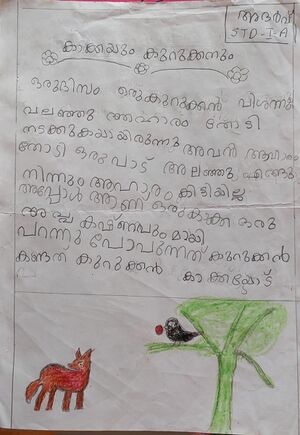 അദർവ്
STD-I-A
കാക്കയും കുറുക്കനും
ഒരുദിസം ഒരുകുറുക്കൻ വിശന്നു
വലഞ്ഞു ആഹാരം തേടി
നടക്കുകയായിരുന്നു അവൻ ആഹാരം
തേടി ഒരുപാട് അലഞ്ഞു എങ്ങു
നിന്നും ആഹാരം കിട്ടിയില്ല
അപ്പോൾ ആണ് ഒരുകാക്ക ഒരു
കഷ്ണവും മായി
പറന്നു പോവുന്നത് കുറുക്കൻ
കണ്ടത് കുറുക്കൻ കാക്കയോട്